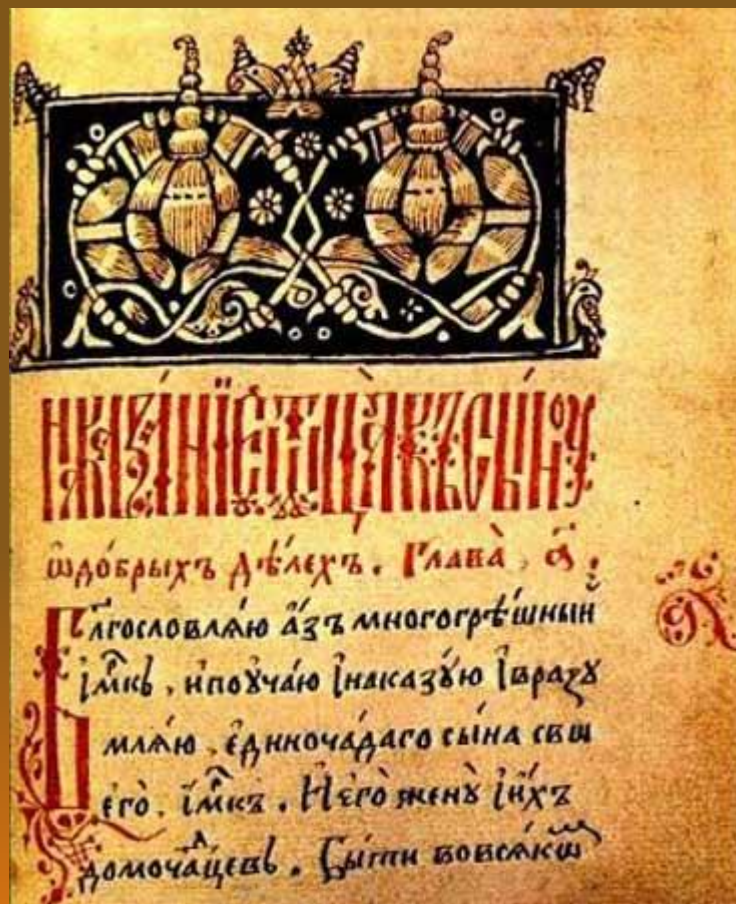 НАКАЗА́НЇЕ ѾЦА̀ КЪ СЫ́НОУ
ѡдо́брыхъ дѣ́лехъ. Глава̀, а҃.
Блгословлѧ́ю а́зъ многогрѣ́шныи
імⷬ҇къ, ипоуча́ю інаказу́ю івразу
млѧ́ю, единоча́даго сы́на свѡ
его̀. імⷬ҇къ. Иего̀ жену̀ іи́хъ
домоча́ⷣцевъ. Быти вовсѧкѡⷨ